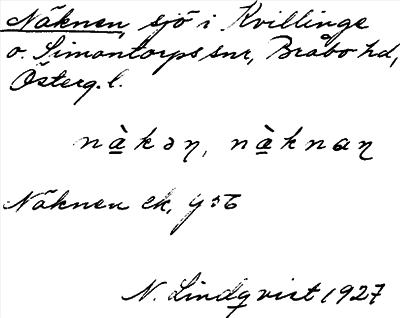 Näknen, sjö i Kvillinge
o. Simontorps snr, Bråbo hd,
Österg. l.
nà̲kən, nà̲knan
Näknen ek,
N. Lindqvist 1927